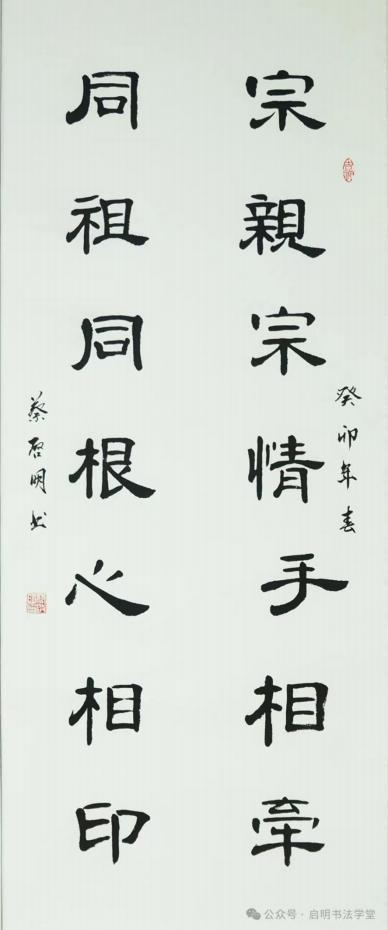 癸卯年春
宗親宗情手相牽
同祖同根心相印
蔡启明书
公众号·启明书法学堂